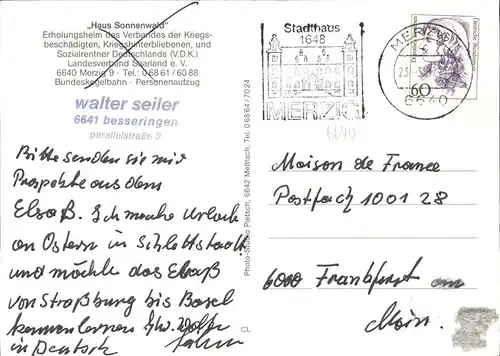 "Haus Sonnenwald"
Erholungsheim des Verbandes der Kriegs-
beschädigten, Kriegshinterbliebenen, und
Sozialrentner Deutschlands (V.D.K.)
Landesverband Saarland e. V.
6640 Merzig 9 · Tel.: 0 68 61 / 60 88
Bundeskegelbahn · Personenaufzug
walter seiler
6641 besseringen
parallelstraße 2
Bitte senden sie mir
Prospekte aus dem
Elsaß. Ich mache Urlaub
an Ostern in Schlettstadt.
und möchte das Elsaß
von Straßburg bis Basel
kennenlernen
in Deutsch
CL
Photo-Studio Pietsch, 6642 Mettlach, Tel. 0 68 64 / 70 24
Stadthaus
1648
MERZIG
6640
MERZIG
6640
60
Maison de France
Postfach 1001 28
6000 Frankfurt am
Main.